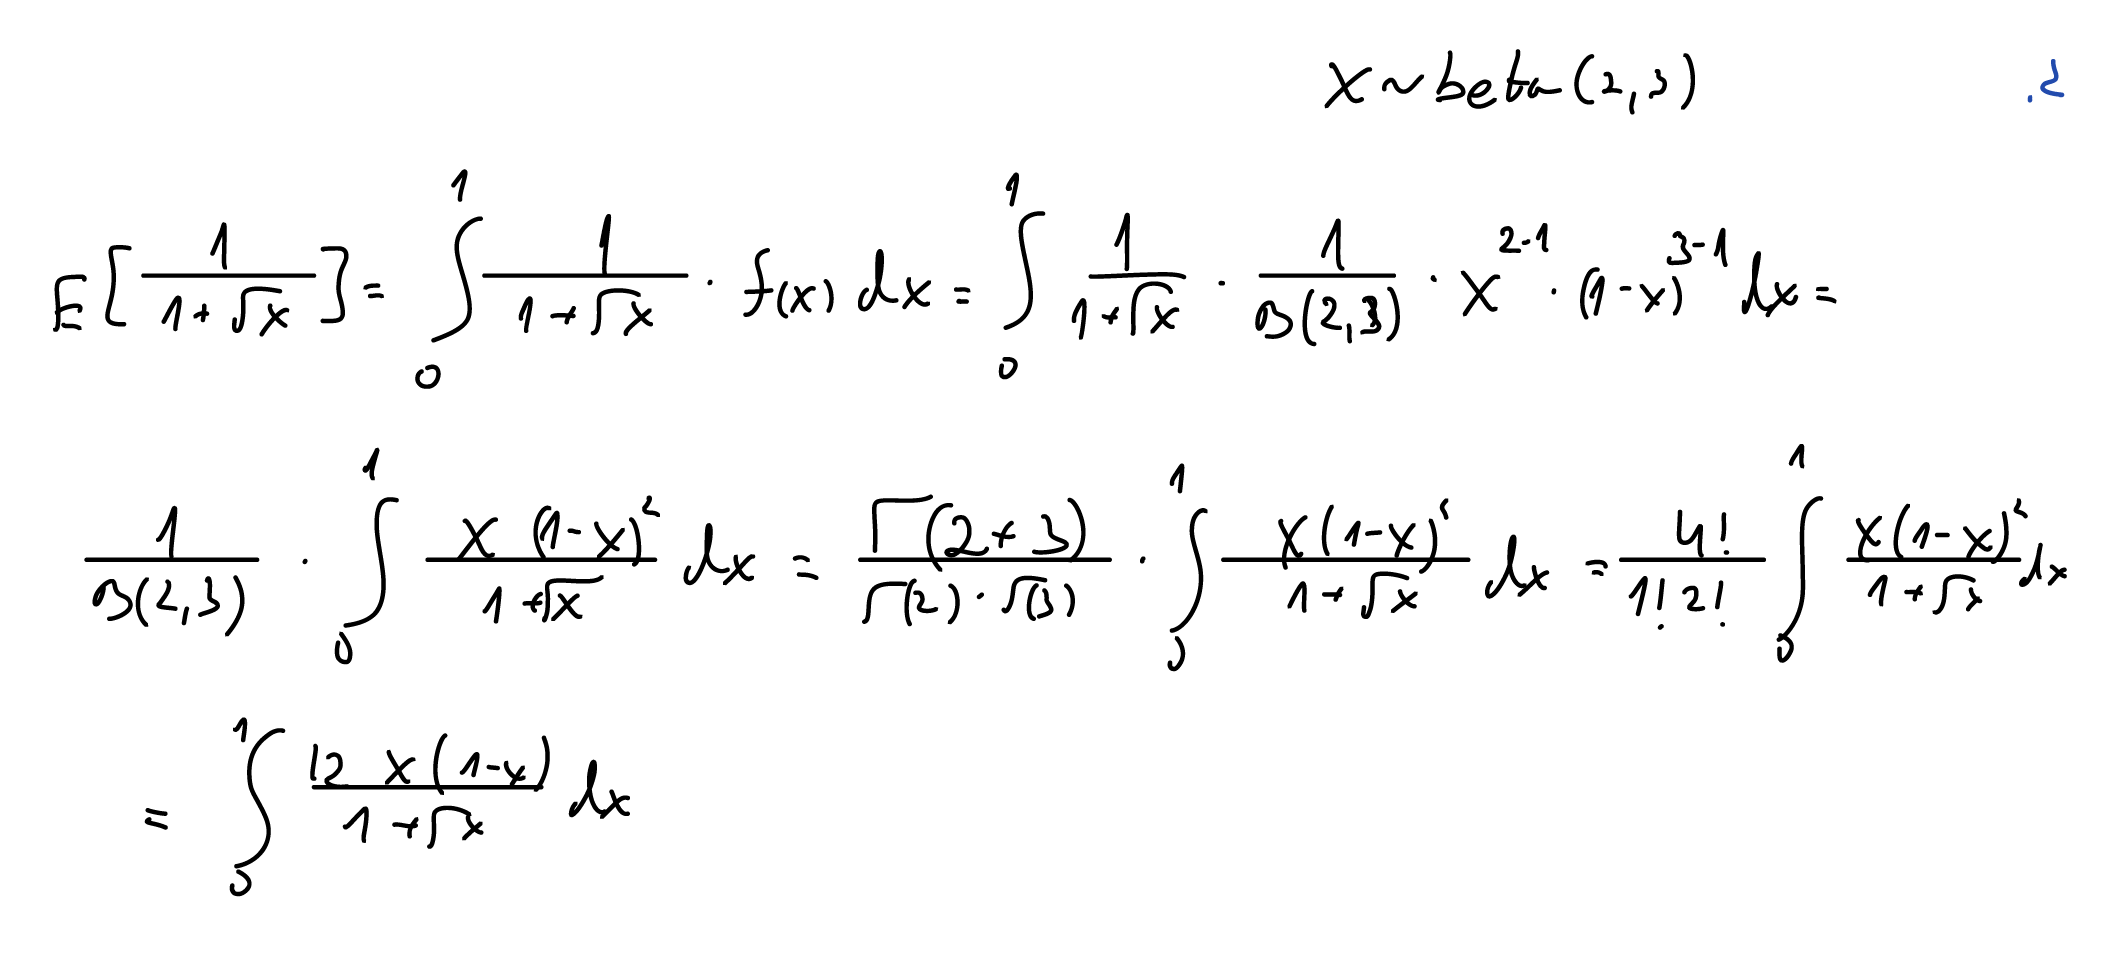 X ~ beta(2,3) .2
E[1/(1+√x)] = ∫₀¹ 1/(1+√x) · f(x) dx = ∫₀¹ 1/(1+√x) · 1/B(2,3) · x^(2-1) · (1-x)^(3-1) dx =
1/B(2,3) · ∫₀¹ x(1-x)²/(1+√x) dx = Γ(2+3)/(Γ(2)·Γ(3)) · ∫₀¹ x(1-x)²/(1+√x) dx = 4!/(1!2!) ∫₀¹ x(1-x)²/(1+√x) dx
= ∫₀¹ 12 x(1-x)/(1+√x) dx